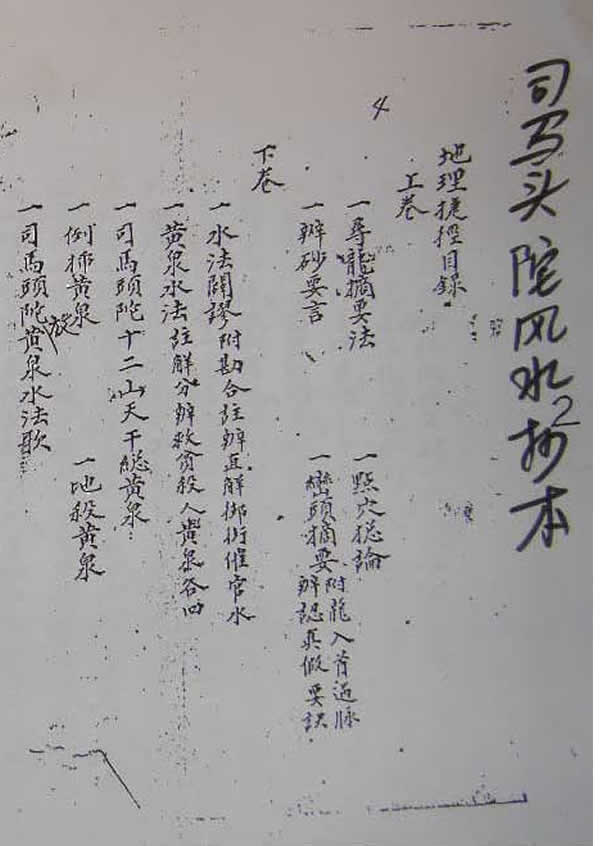 司马头陀风水抄本
2
4
地理捷徑目錄
上卷
一尋龍摘要法 一點穴總論
一辨砂要言 一巒頭摘要附龍入首過脈辨認真假要訣
下卷
一水法闢謬附勘合註辨正解御街催官水
一黃泉水法註解分辨救貧殺人黃泉各四
一司馬頭陀十二山天干總黃泉
一例排黃泉 一地殺黃泉
一司馬頭陀黃泉水法歌
放